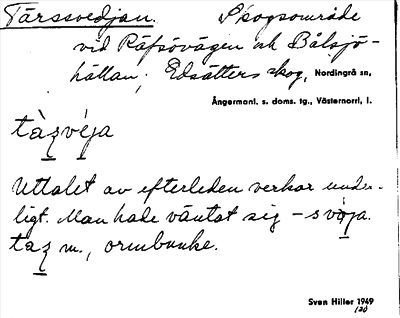 Tärssvedjan. Skogsområde
vid Räfsövägen och Bålsjö-
hällan; Edsätters skog, Nordingrå sn,
Ångermanl. s. doms. tg., Västernorrl. l.
tàzvéja
Uttalet av efterleden verkar under-
ligt. Man hade väntat sig -svòja.
taz m., ormbunke.
Sven Hiller 1949